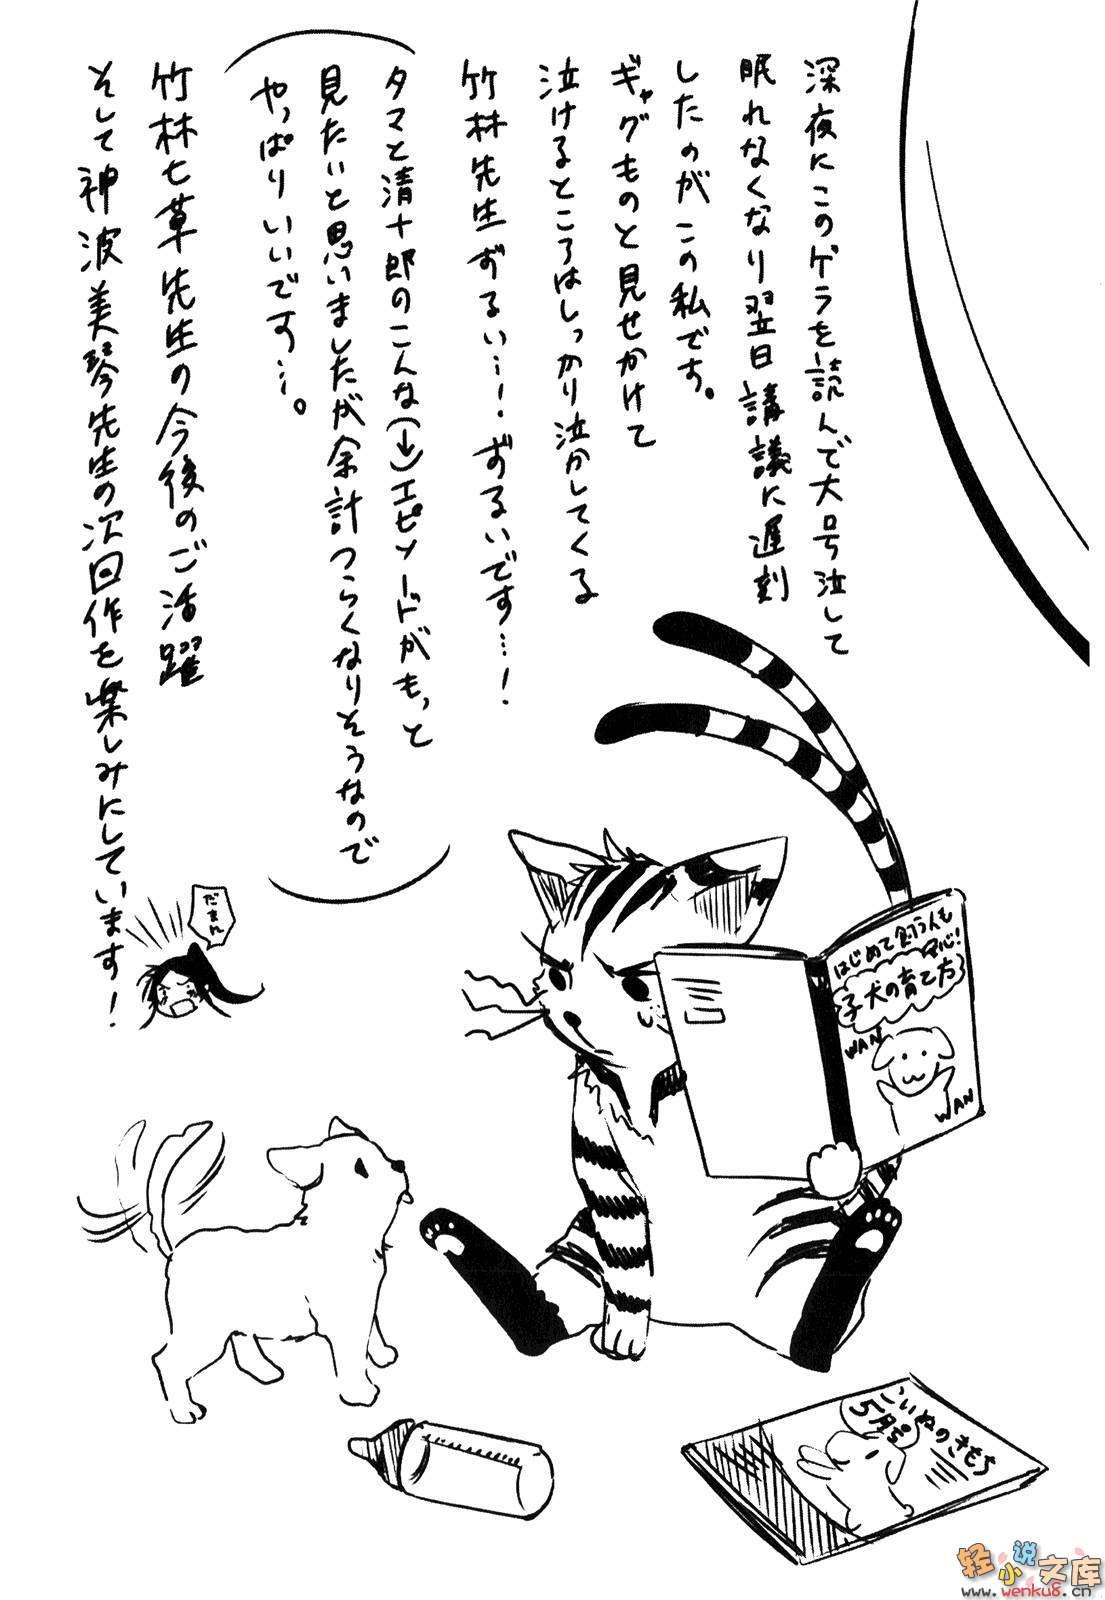 深夜にこのゲラを読んで大号泣して
眠れなくなり翌日講議に遅刻
したのがこの私です。
ギャグものと見せかけて
泣けるところはしっかり泣かしてくる
竹林先生ずるい…！ずるいです…！
タマと清十郎のこんな(↓)エピソードがもっと
見たいと思いましたが余計つらくなりそうなので
やっぱりいいです…。
竹林七草先生の今後のご活躍
そして神波美琴先生の次回作を楽しみにしています！
だもん
はじめて飼う人も
安心！
子犬の育て方
WAN
WAN
こいぬのきもち
5月号
轻小说文库
www.wenku8.cn